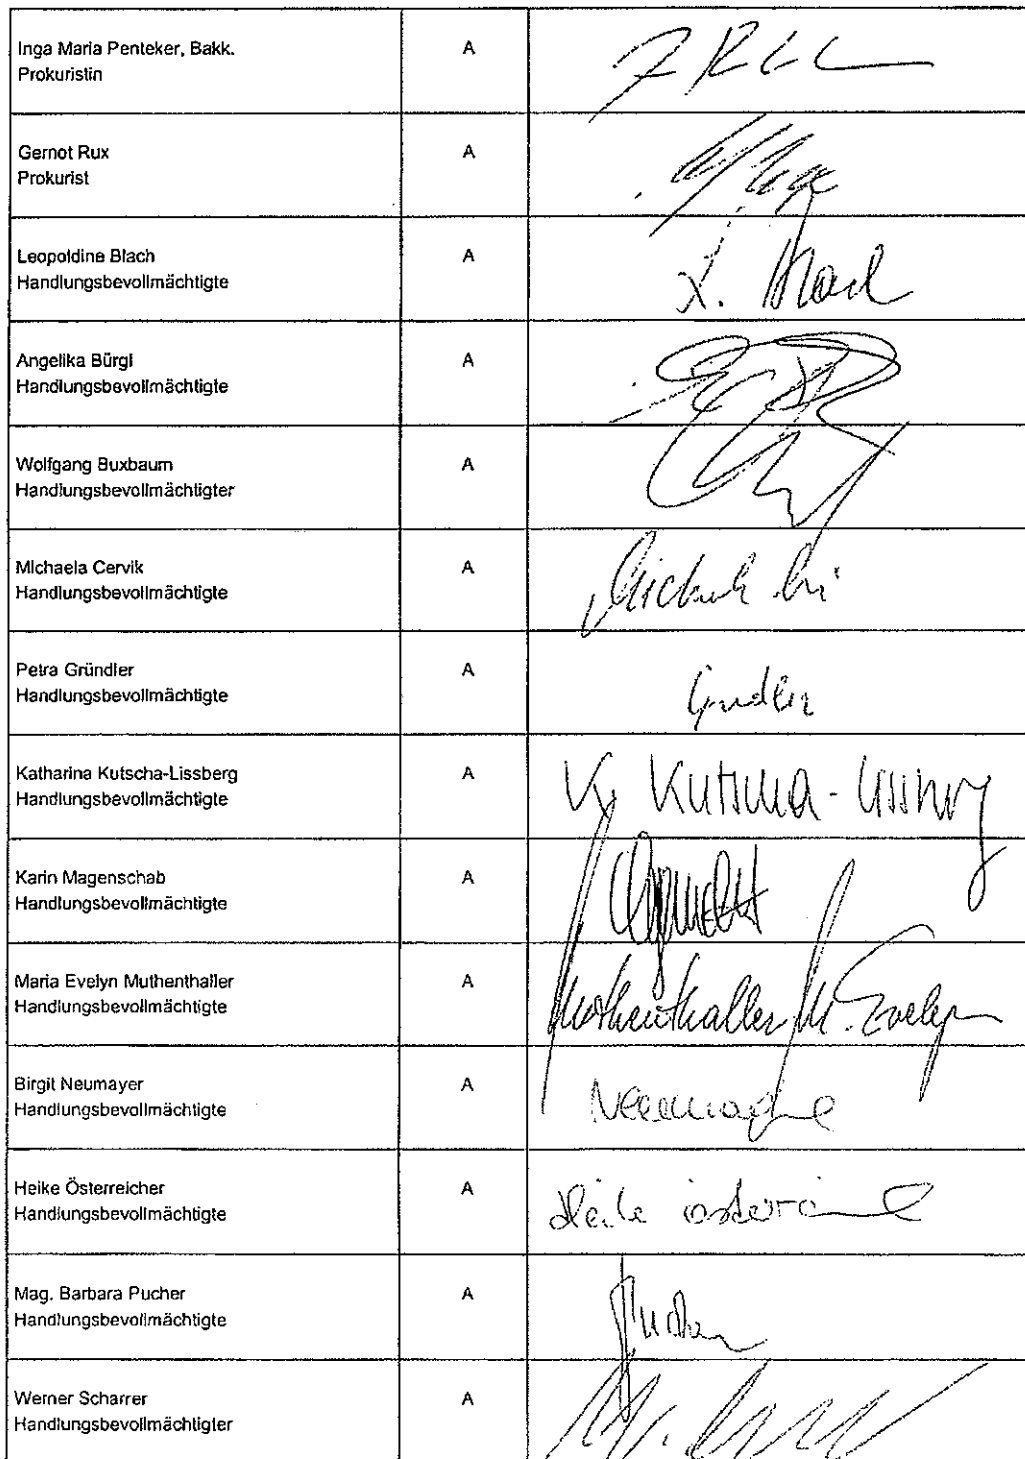 Inga Maria Penteker, Bakk. A
Prokuristin
Gernot Rux A
Prokurist
Leopoldine Blach A
Handlungsbevollmächtigte
L. Blach
Angelika Bürgl A
Handlungsbevollmächtigte
Wolfgang Buxbaum A
Handlungsbevollmächtigter
Michaela Cervik A
Handlungsbevollmächtigte
Petra Gründler A
Handlungsbevollmächtigte
Katharina Kutscha-Lissberg A
Handlungsbevollmächtigte
K. Kutscha-Lissberg
Karin Magenschab A
Handlungsbevollmächtigte
Maria Evelyn Muthenthaller A
Handlungsbevollmächtigte
Muthenthaller M. Evelyn
Birgit Neumayer A
Handlungsbevollmächtigte
Heike Österreicher A
Handlungsbevollmächtigte
Mag. Barbara Pucher A
Handlungsbevollmächtigte
Werner Scharrer A
Handlungsbevollmächtigter